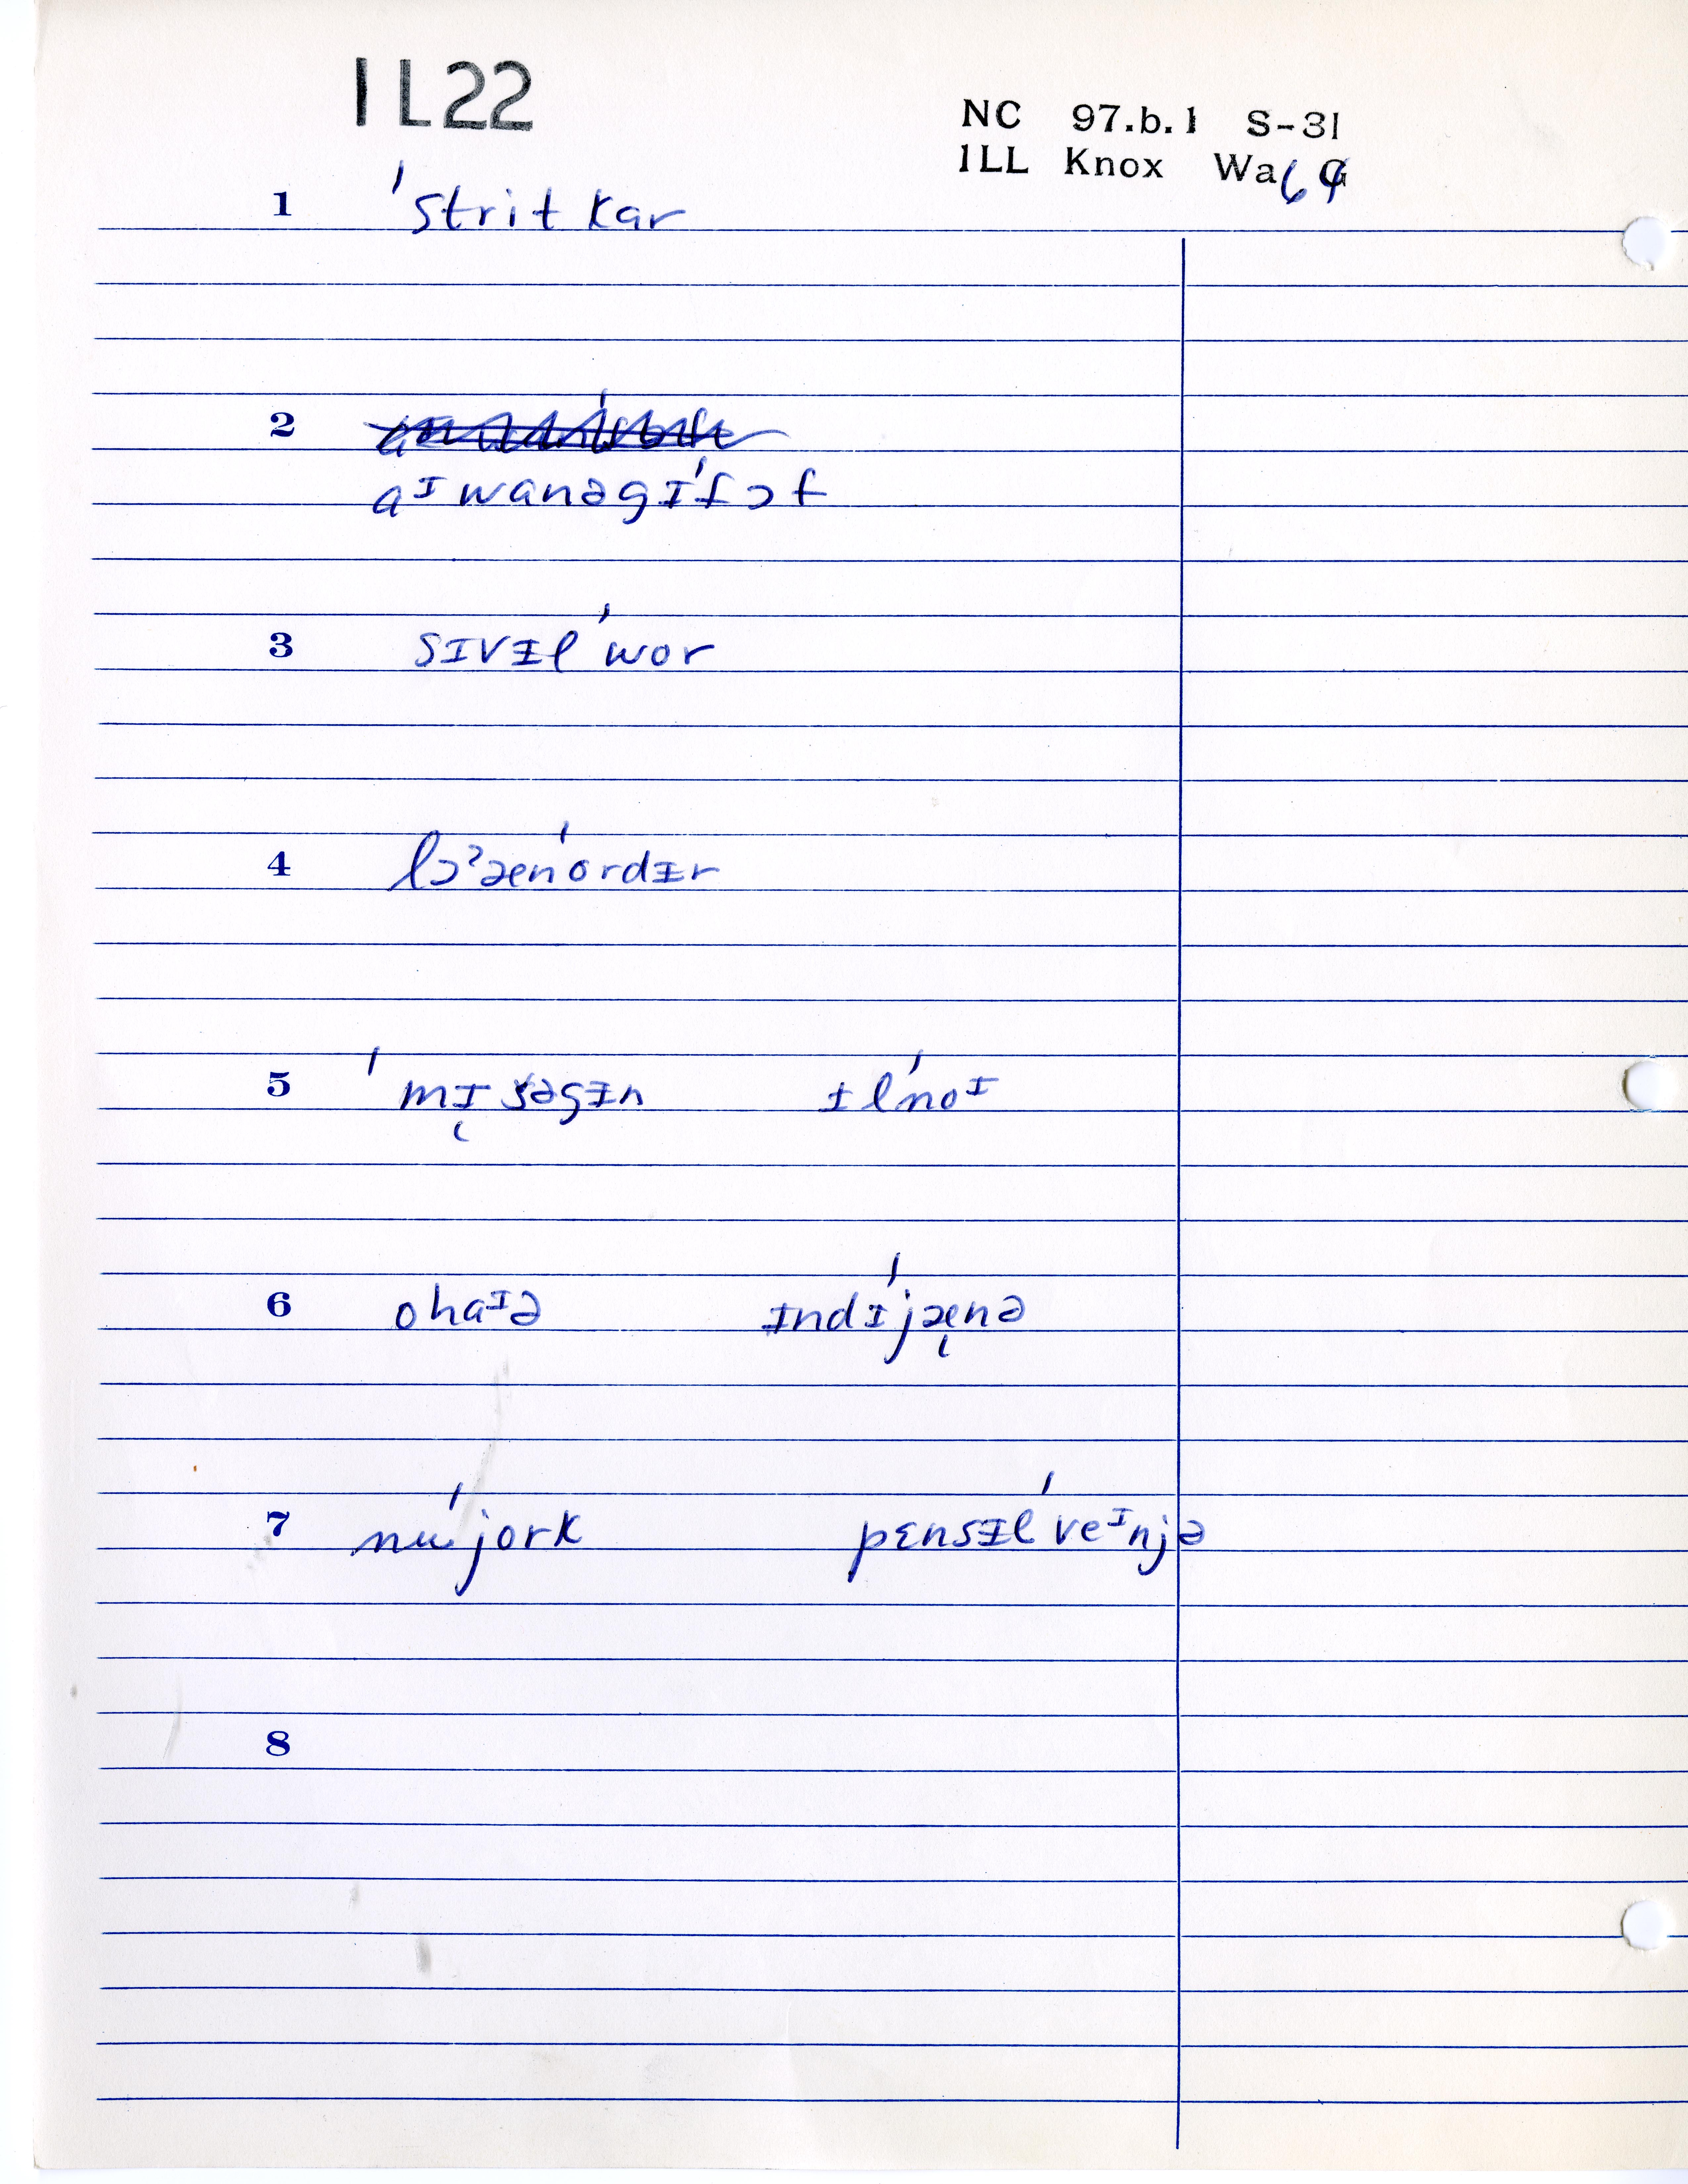 1L22
NC 97.b.1 S-31
1LL Knox Wa64
1 ˈstrit kar
2
aᴵwanəgɪˈfɔf
3 sɪvᵻlˈwor
4 lɔˀænˈordᵻr
5 ˈmɪšəgᵻn ᵻlˈnoᴵ
6 ohaᴵə ᵻndɪˈjænə
7 nuˈjork pɛnsᵻlˈveᴵnjə
8